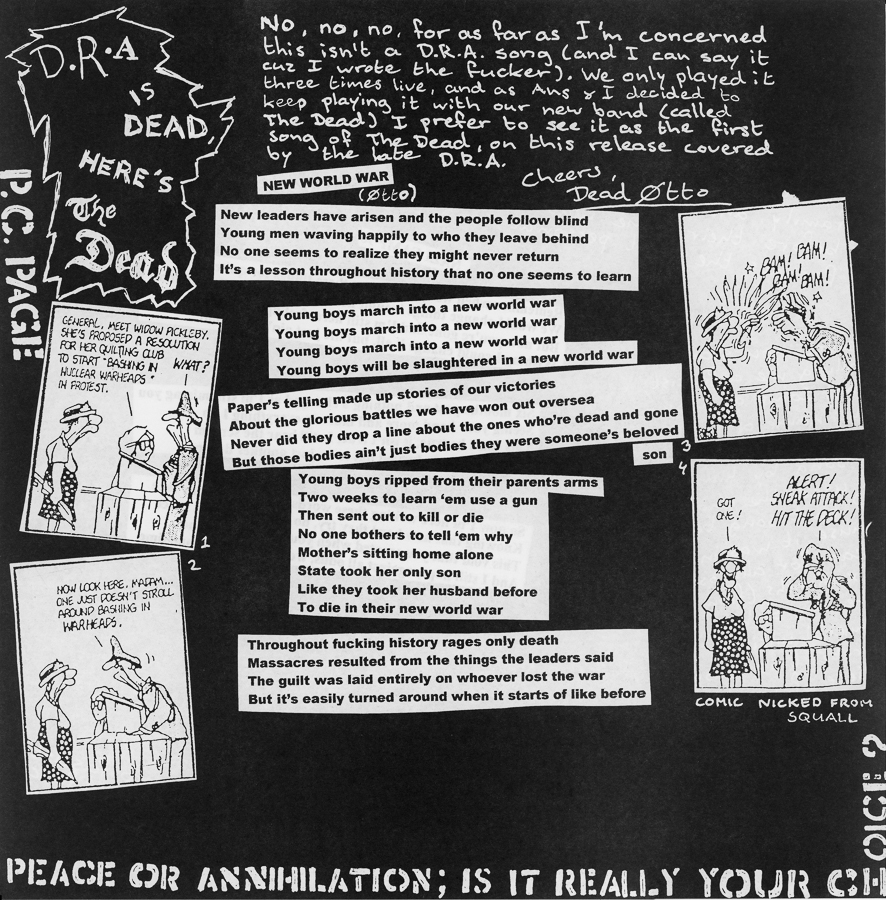 D.R.A
IS
DEAD,
HERE'S
The
Dead
No, no, no, for as far as I'm concerned
this isn't a D.R.A. song (and I can say it
cuz I wrote the fucker). We only played it
three times live, and as Ans & I decided to
keep playing it with our new band (called
The Dead) I prefer to see it as the first
song of The Dead, on this release covered
by the late D.R.A.
Cheers,
Dead Øtto
P.C. PAGE
NEW WORLD WAR
(Øtto)
New leaders have arisen and the people follow blind
Young men waving happily to who they leave behind
No one seems to realize they might never return
It's a lesson throughout history that no one seems to learn
Young boys march into a new world war
Young boys march into a new world war
Young boys march into a new world war
Young boys will be slaughtered in a new world war
Paper's telling made up stories of our victories
About the glorious battles we have won out oversea
Never did they drop a line about the ones who're dead and gone
But those bodies ain't just bodies they were someone's beloved
son
Young boys ripped from their parents arms
Two weeks to learn 'em use a gun
Then sent out to kill or die
No one bothers to tell 'em why
Mother's sitting home alone
State took her only son
Like they took her husband before
To die in their new world war
Throughout fucking history rages only death
Massacres resulted from the things the leaders said
The guilt was laid entirely on whoever lost the war
But it's easily turned around when it starts of like before
GENERAL, MEET WIDOW PICKLEBY.
SHE'S PROPOSED A RESOLUTION
FOR HER QUILTING CLUB
TO START "BASHING IN
NUCLEAR WARHEADS"
IN PROTEST.
WHAT?
1
2
NOW LOOK HERE, MADAM...
ONE JUST DOESN'T STROLL
AROUND BASHING IN
WARHEADS.
BAM! BAM!
BAM! BAM!
3
4
GOT
ONE!
ALERT!
SNEAK ATTACK!
HIT THE DECK!
COMIC NICKED FROM
SQUALL
PEACE OR ANNIHILATION; IS IT REALLY YOUR CH
OICE?